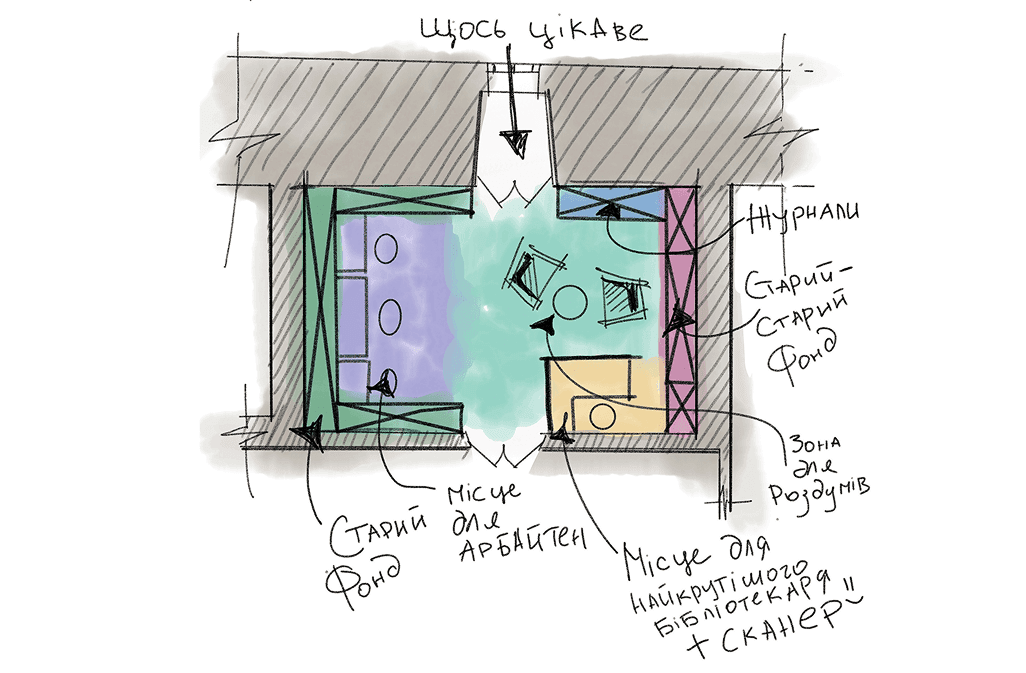 Щось цікаве
Журнали
Старий-
Старий
Фонд
Зона
для
Роздумів
Місце
для
Арбайтен
Старий
Фонд
Місце для
найкрутішого
бібліотекаря
+ сканер